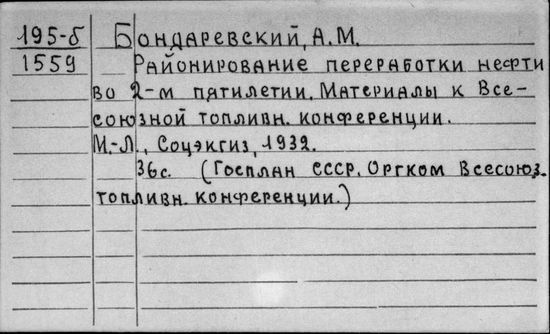 195-б
1559
Бондаревский, А.М.
Районирование переработки нефти
во 2-м пятилетии. Материалы к Все-
союзной топливн. конференции.
М.-Л., Соцэкгиз, 1932.
36с. (Госплан СССР. Оргком Всесоюз.
топливн. конференции.)